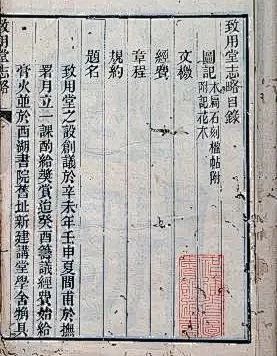 致用堂志略目錄
圖記 木扁石刻楹帖附
附記花木
文檄
經費
章程
規約
題名
致用堂之設創議於辛未年壬申夏間甫於撫
署月立一課酌給獎賞迨癸酉籌議經費始給
膏火並於西湖書院舊址新建講堂學舍備具